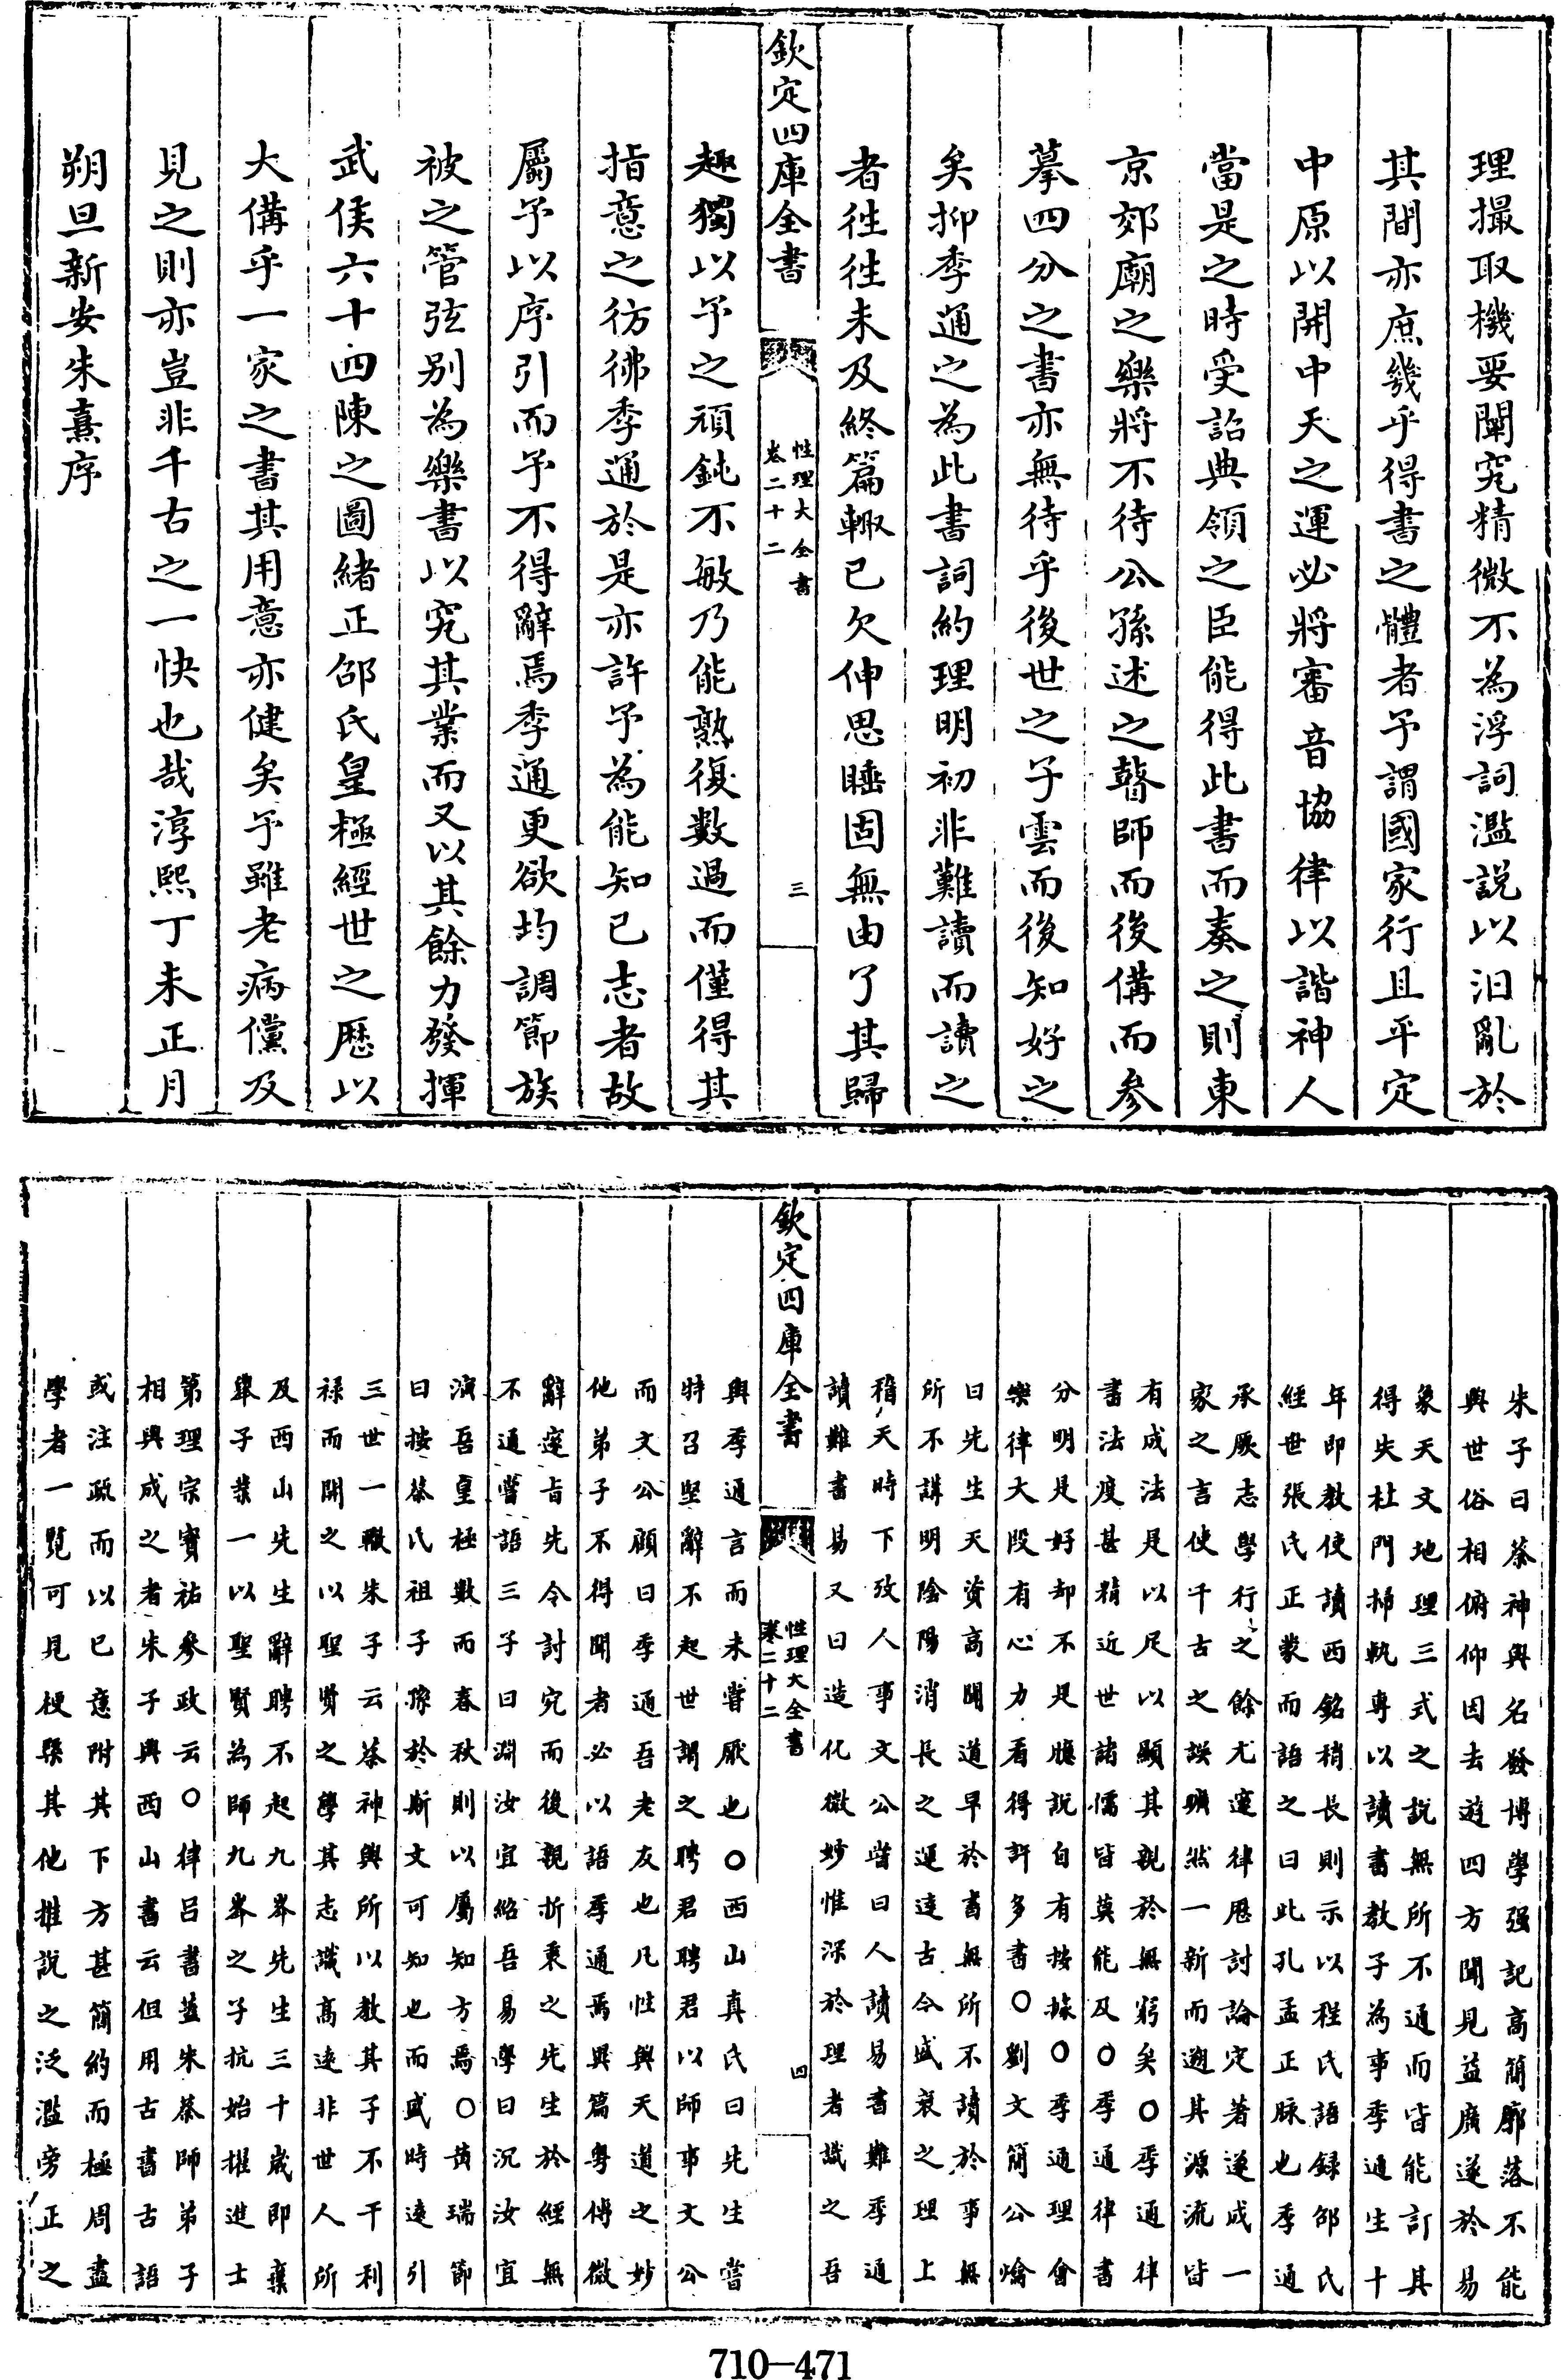 理撮取機要闡究精微不為浮詞濫說以汩亂於
其間亦庶幾乎得書之體者予謂國家行且平定
中原以開中天之運必將審音協律以諧神人
當是之時受詔典領之臣能得此書而奏之則東
京郊廟之樂將不待公孫述之瞽師而後備而參
摹四分之書亦無待乎後世之子雲而後知好之
矣抑季通之為此書詞約理明初非難讀而讀之
者徃徃未及終篇輙已欠伸思睡固無由了其歸
欽定四庫全書
性理大全書
卷二十二
三
趣獨以予之頑鈍不敏乃能熟復數過而僅得其
指意之彷彿季通於是亦許予為能知己志者故
屬予以序引而予不得辭焉季通更欲均調節族
被之管弦别為樂書以究其業而又以其餘力發揮
武侯六十四陳之圖緒正邵氏皇極經世之歷以
大備乎一家之書其用意亦健矣予雖老病儻及
見之則亦豈非千古之一快也哉淳熙丁未正月
朔旦新安朱熹序
朱子曰蔡神與名發博學强記高簡廓落不能
與世俗相俯仰因去遊四方聞見益廣遂於易
象天文地理三式之說無所不通而皆能訂其
得失杜門掃軌專以讀書教子為事季通生十
年即教使讀西銘稍長則示以程氏語録邵氏
經世張氏正蒙而語之曰此孔孟正脉也季通
承厥志學行之餘尤邃律厯討論定著遂成一
家之言使千古之誤曠然一新而遡其源流皆
有成法是以尺以顯其親於無窮矣○季通律
書法度甚精近世諸儒皆莫能及○季通律書
分明是好却不是臆說自有按據○季通理會
樂律大段有心力看得許多書○劉文簡公爚
曰先生天資高聞道早於書無所不讀於事無
所不講明陰陽消長之運逹古今盛衰之理上
稽天時下攷人事文公嘗曰人讀易書難季通
讀難書易又曰造化微妙惟深於理者識之吾
欽定四庫全書
性理大全書
卷二十二
四
與季通言而未嘗厭也○西山真氏曰先生嘗
特召堅辭不起世謂之聘君聘君以師事文公
而文公顧曰季通吾老友也凡性與天道之妙
他弟子不得聞者必以語季通焉異篇粤傳微
辭邃旨先令討究而後親折衷之先生於經無
不通嘗語三子曰淵汝宜紹吾易學曰沉汝宜
演吾皇極數而春秋則以屬知方焉○黄瑞節
曰按蔡氏祖子孫於斯文可知也而盛時逺引
三世一轍朱子云蔡神與所以教其子不干利
禄而開之以聖賢之學其志識高逺非世人所
及西山先生辭聘不起九峯先生三十歲即棄
舉子業一以聖賢為師九峯之子抗始擢進士
第理宗寳祐參政云○律吕書蓋朱蔡師弟子
相與成之者朱子與西山書云但用古書古語
或注疏而以己意附其下方甚簡約而極周盡
學者一覽可見梗槩其他推說之泛濫旁正之
710-471